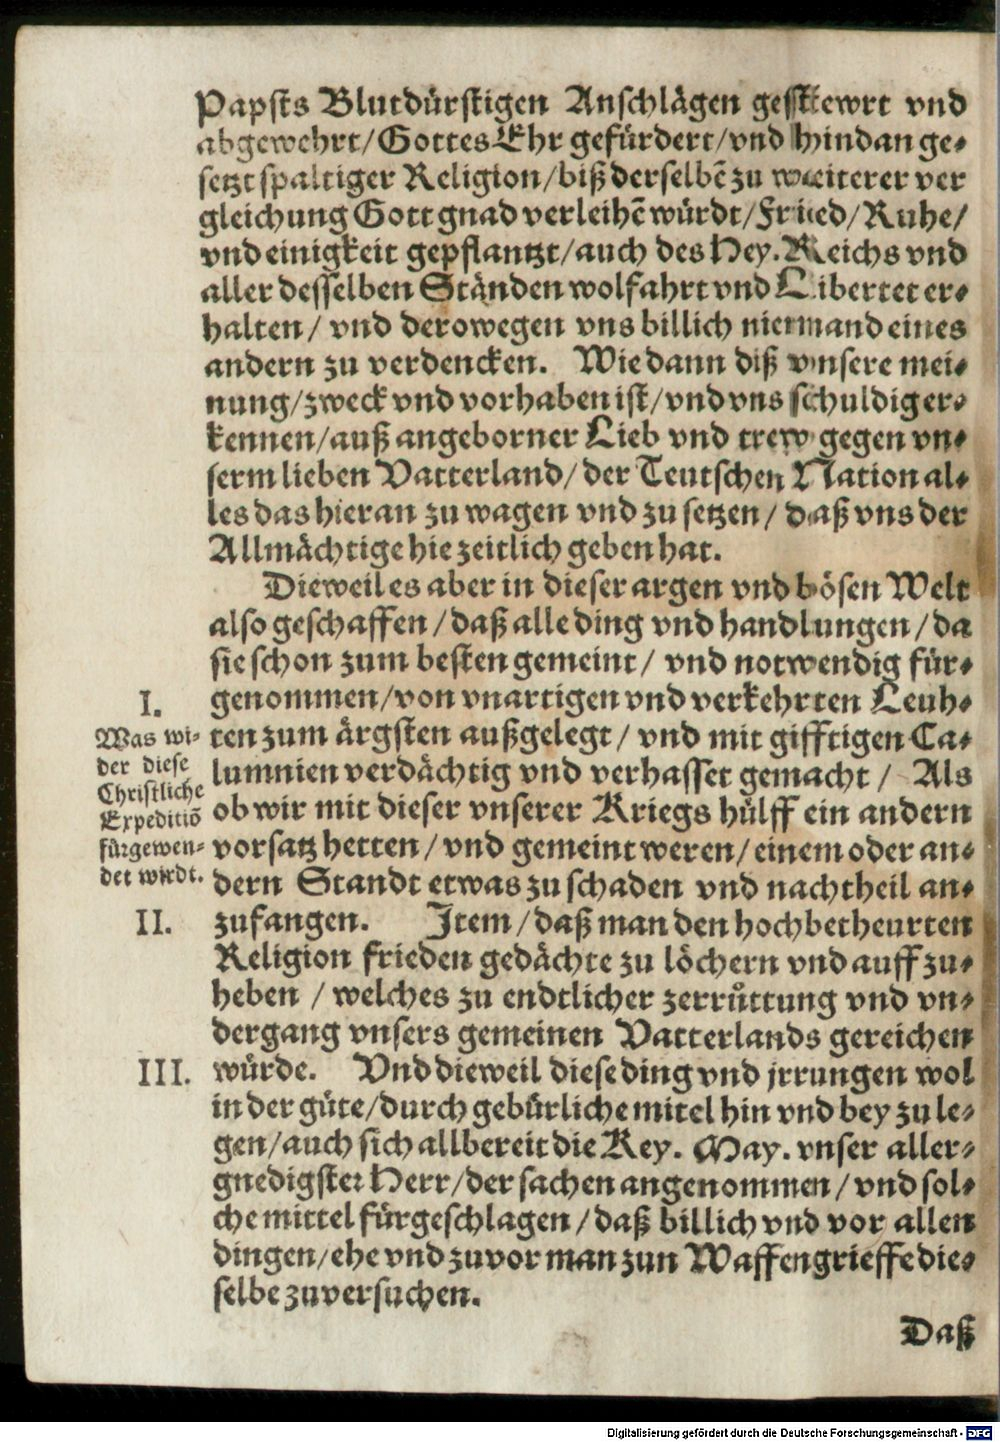 Papsts Blutdürstigen Anschlägen gestewrt vnd
abgewehrt/Gottes Ehr gefürdert/vnd hindan ge⸗
setzt spaltiger Religion/biß derselbē zu weiterer ver
gleichung Gott gnad verleihē würdt/Fried/Ruhe/
vnd einigkeit gepflantzt/auch des Hey. Reichs vnd
aller desselben Ständen wolfahrt vnd Libertet er⸗
halten/ vnd derowegen vns billich niemand eines
andern zu verdencken. Wie dann diß vnsere mei⸗
nung/zweck vnd vorhaben ist/vnd vns schuldig er⸗
kennen/auß angeborner Lieb vnd trew gegen vn⸗
serm lieben Vatterland/der Teutschen Nation al⸗
les das hieran zu wagen vnd zu setzen/ daß vns der
Allmächtige hie zeitlich geben hat.
Dieweil es aber in dieser argen vnd bösen Welt
also geschaffen/daß alle ding vnd handlungen/da
sie schon zum besten gemeint/ vnd notwendig für⸗
I.
genommen/von vnartigen vnd verkehrten Leuh⸗
Was wi⸗
der diese
Christliche
Expeditiō
fürgewen⸗
det wirdt.
ten zum ärgsten außgelegt/ vnd mit gifftigen Ca⸗
lumnien verdächtig vnd verhasset gemacht/ Als
ob wir mit dieser vnserer Kriegs hülff ein andern
vorsatz hetten/vnd gemeint weren/einem oder an⸗
dern Standt etwas zu schaden vnd nachtheil an⸗
II.
zufangen. Item/daß man den hochbetheurten
Religion frieden gedächte zu löchern vnd auff zu⸗
heben /welches zu endtlicher zerrůttung vnd vn⸗
dergang vnsers gemeinen Vatterlands gereichen
III.
würde. Vnd dieweil diese ding vnd jrrungen wol
in der güte/durch gebürliche mitel hin vnd bey zu le⸗
gen/auch sich allbereit die Key. May. vnser aller⸗
gnedigster Herr/der sachen angenommen/vnd sol⸗
che mittel fürgeschlagen/daß billich vnd vor allen
dingen/ehe vnd zuvor man zun Waffen grieffe die⸗
selbe zuversuchen.
Daß
Digitalisierung gefördert durch die Deutsche Forschungsgemeinschaft - DFG